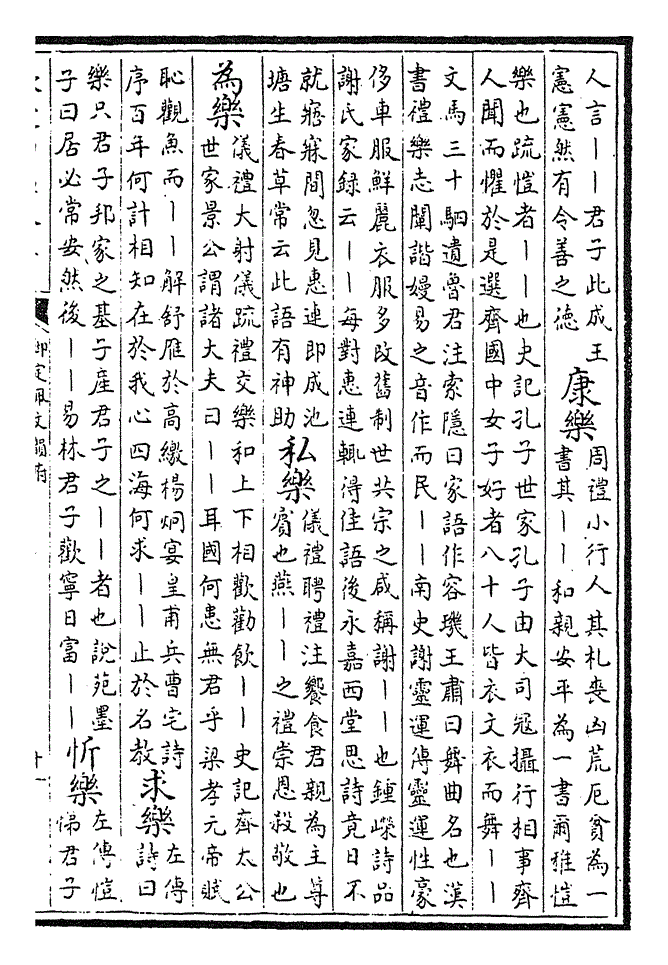 人言丨丨君子此成王
憲憲然有令善之德
康樂
周禮小行人其札喪凶荒厄貧為一
書其丨丨和親安平為一書爾雅愷
樂也疏愷者丨丨也史記孔子世家孔子由大司寇攝行相事齊
人聞而懼於是選齊國中女子好者八十人皆衣文衣而舞丨丨
文馬三十駟遺魯君注索隱曰家語作容璣王肅曰舞曲名也漢
書禮樂志闡諧嫚易之音作而民丨丨南史謝靈運傳靈運性豪
侈車服鮮麗衣服多改舊制世共宗之咸稱謝丨丨也鍾嶸詩品
謝氏家録云丨丨每對惠連輒得佳語後永嘉西堂思詩竟日不
就寤寐間忽見惠連即成池
塘生春草常云此語有神助
私樂
儀禮聘禮注饗食君親為主尊
賓也燕丨丨之禮崇恩殺敬也
為樂
儀禮大射儀疏禮交樂和上下相歡勸飲丨丨史記齊太公
世家景公謂諸大夫曰丨丨耳國何患無君乎梁孝元帝賦
恥觀魚而丨丨解舒雁於高繳楊炯宴皇甫兵曹宅詩
序百年何計相知在於我心四海何求丨丨止於名教
求樂
左傳
詩曰
樂只君子邦家之基子產君子之丨丨者也說苑墨
子曰居必常安然後丨丨易林君子歡寧日富丨丨
忻樂
左傳愷
悌君子
御定佩文韻府